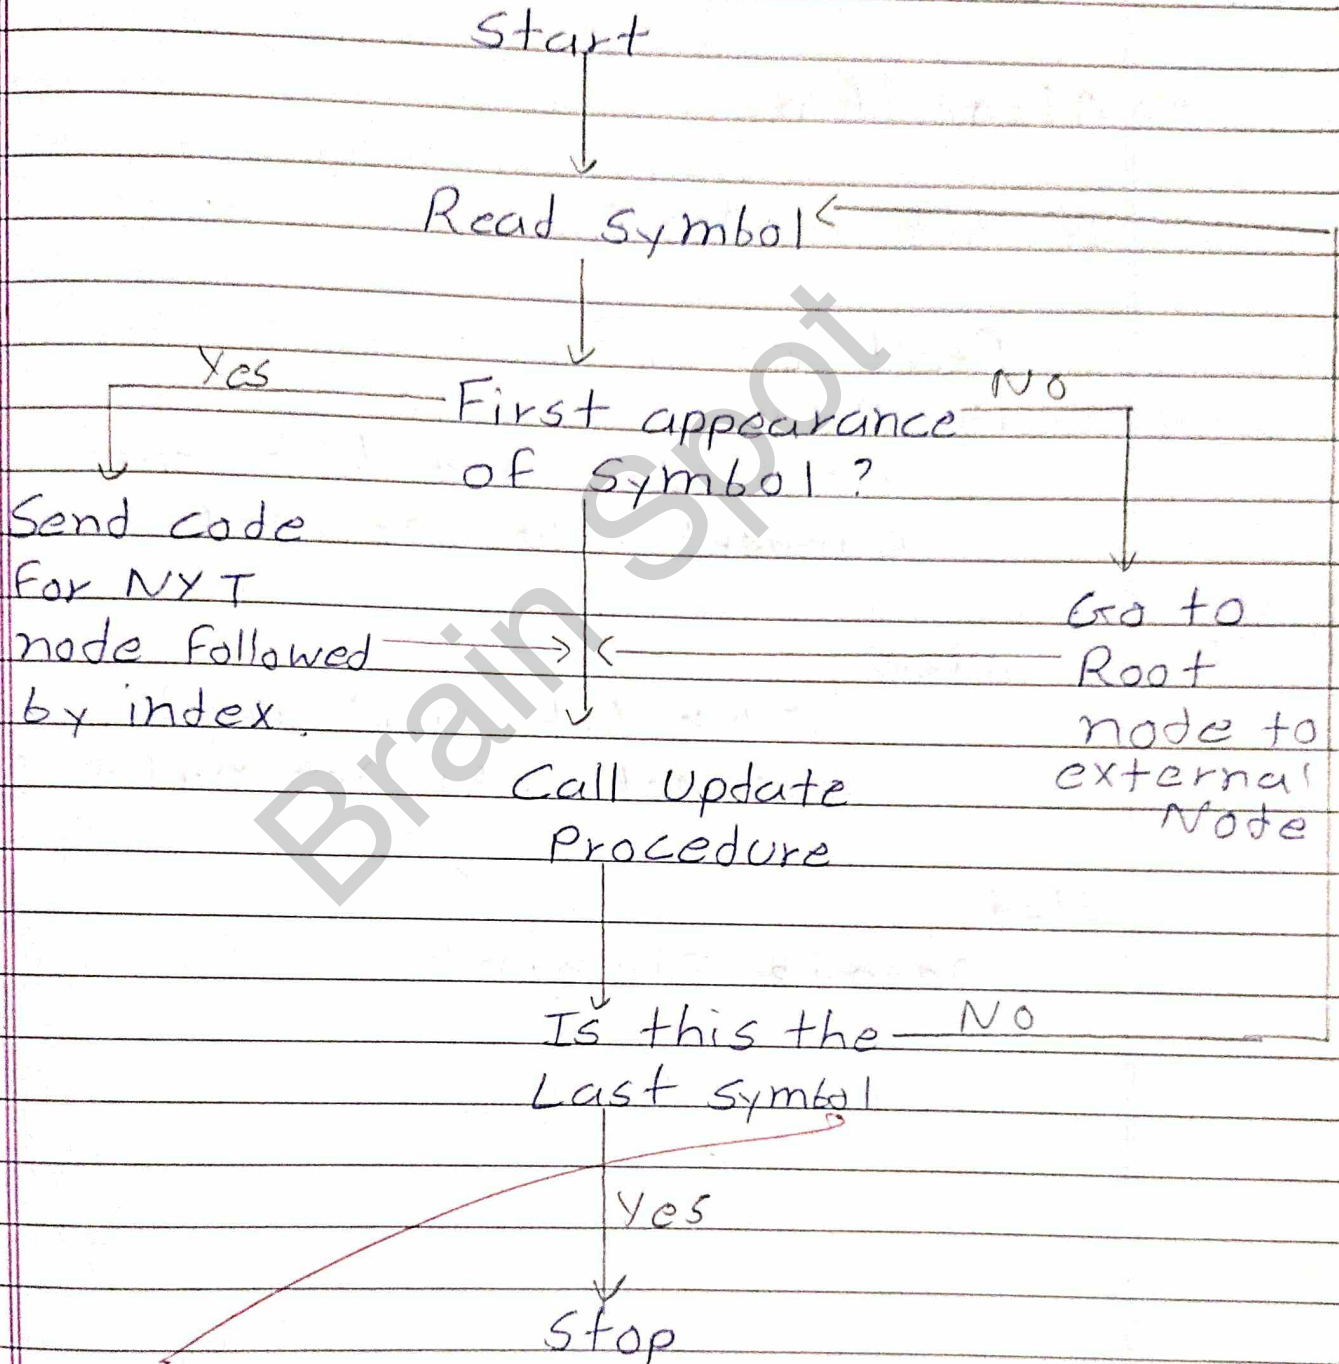 Start
Read Symbol
Yes
No
First appearance
of Symbol?
Send code
For NYT
node Followed
by index.
Go to
Root
node to
external
Node
Call Update
Procedure
Is this the
No
Last Symbol
Yes
Stop
Brain Spot